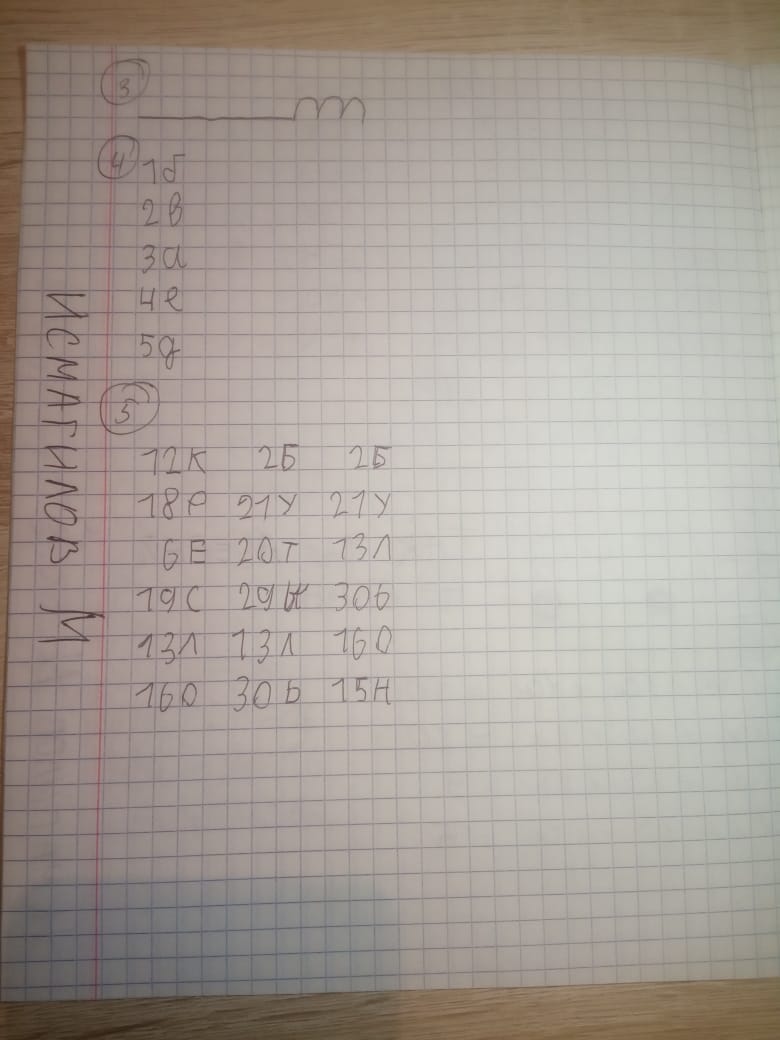 3
4
1б
2в
3а
4е
5д
5
12К 2Б 2Б
18Р 21У 21У
6Е 20Т 13Л
19С 29Ы 30Ь
13Л 13Л 16О
16О 30Ь 15Н
ИСМАГИЛОВ М